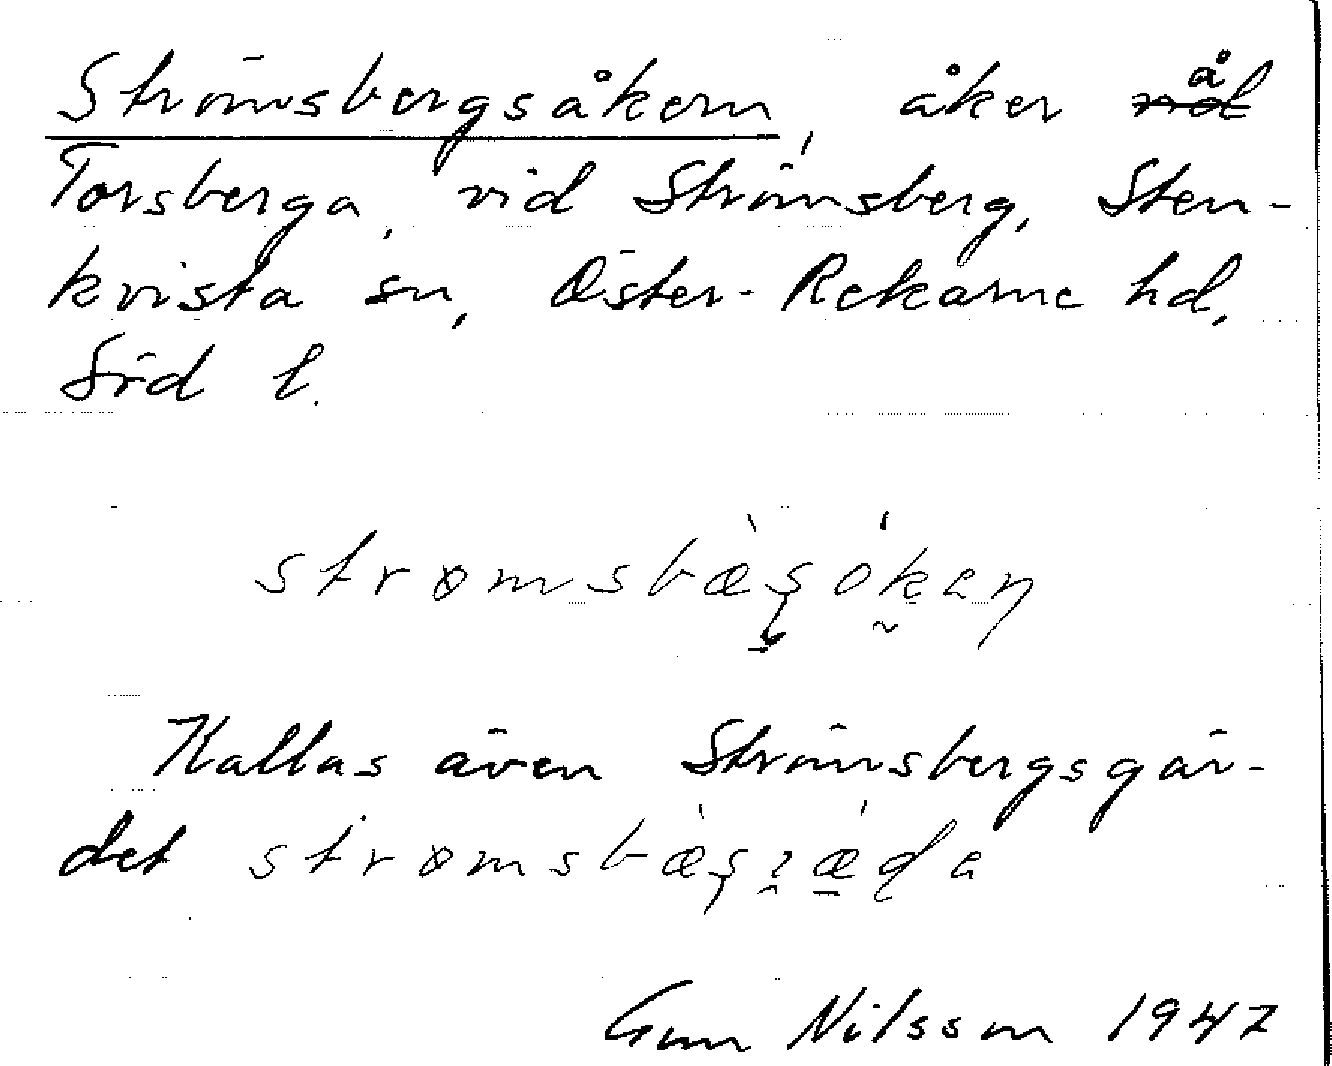 Strömsbergsåkern, åker å
Torsberga, vid Strömsberg, Sten-
kvista sn, Öster-Rekarne hd,
Söd l.
strømsbæ̀ʂókeɳ
Kallas även Strömsbergsgär-
det strømsbæ̀ʂɪæ̀ɖe
Gun Nilsson 1947